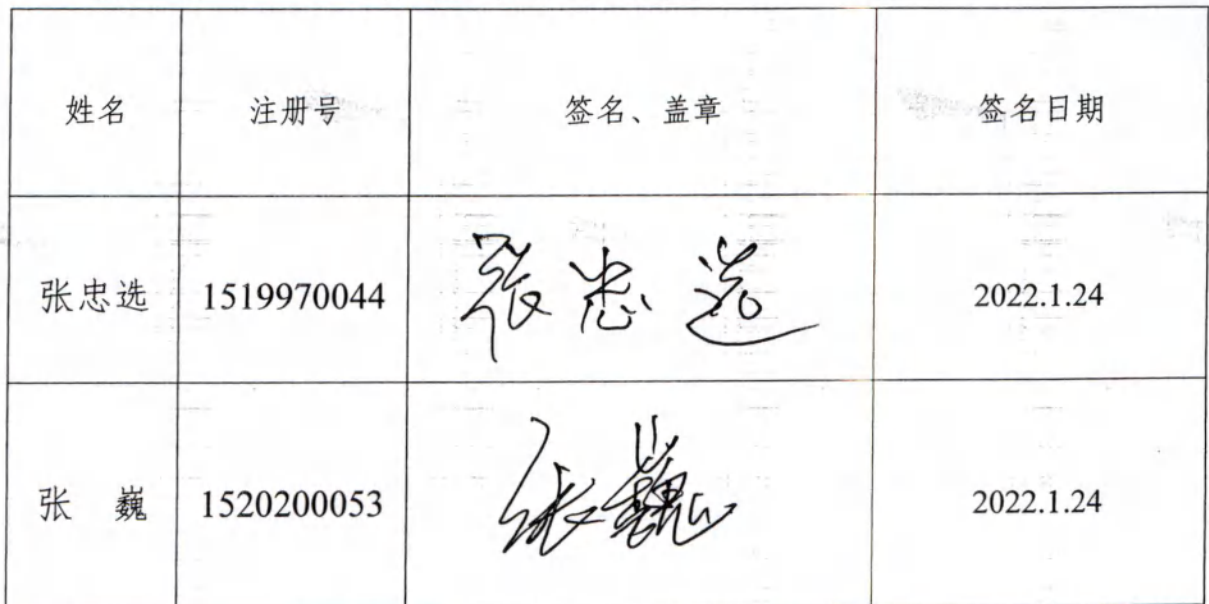 姓名 注册号 签名、盖章 签名日期
张忠选 1519970044 张忠选 2022.1.24
张 巍 1520200053 张巍 2022.1.24